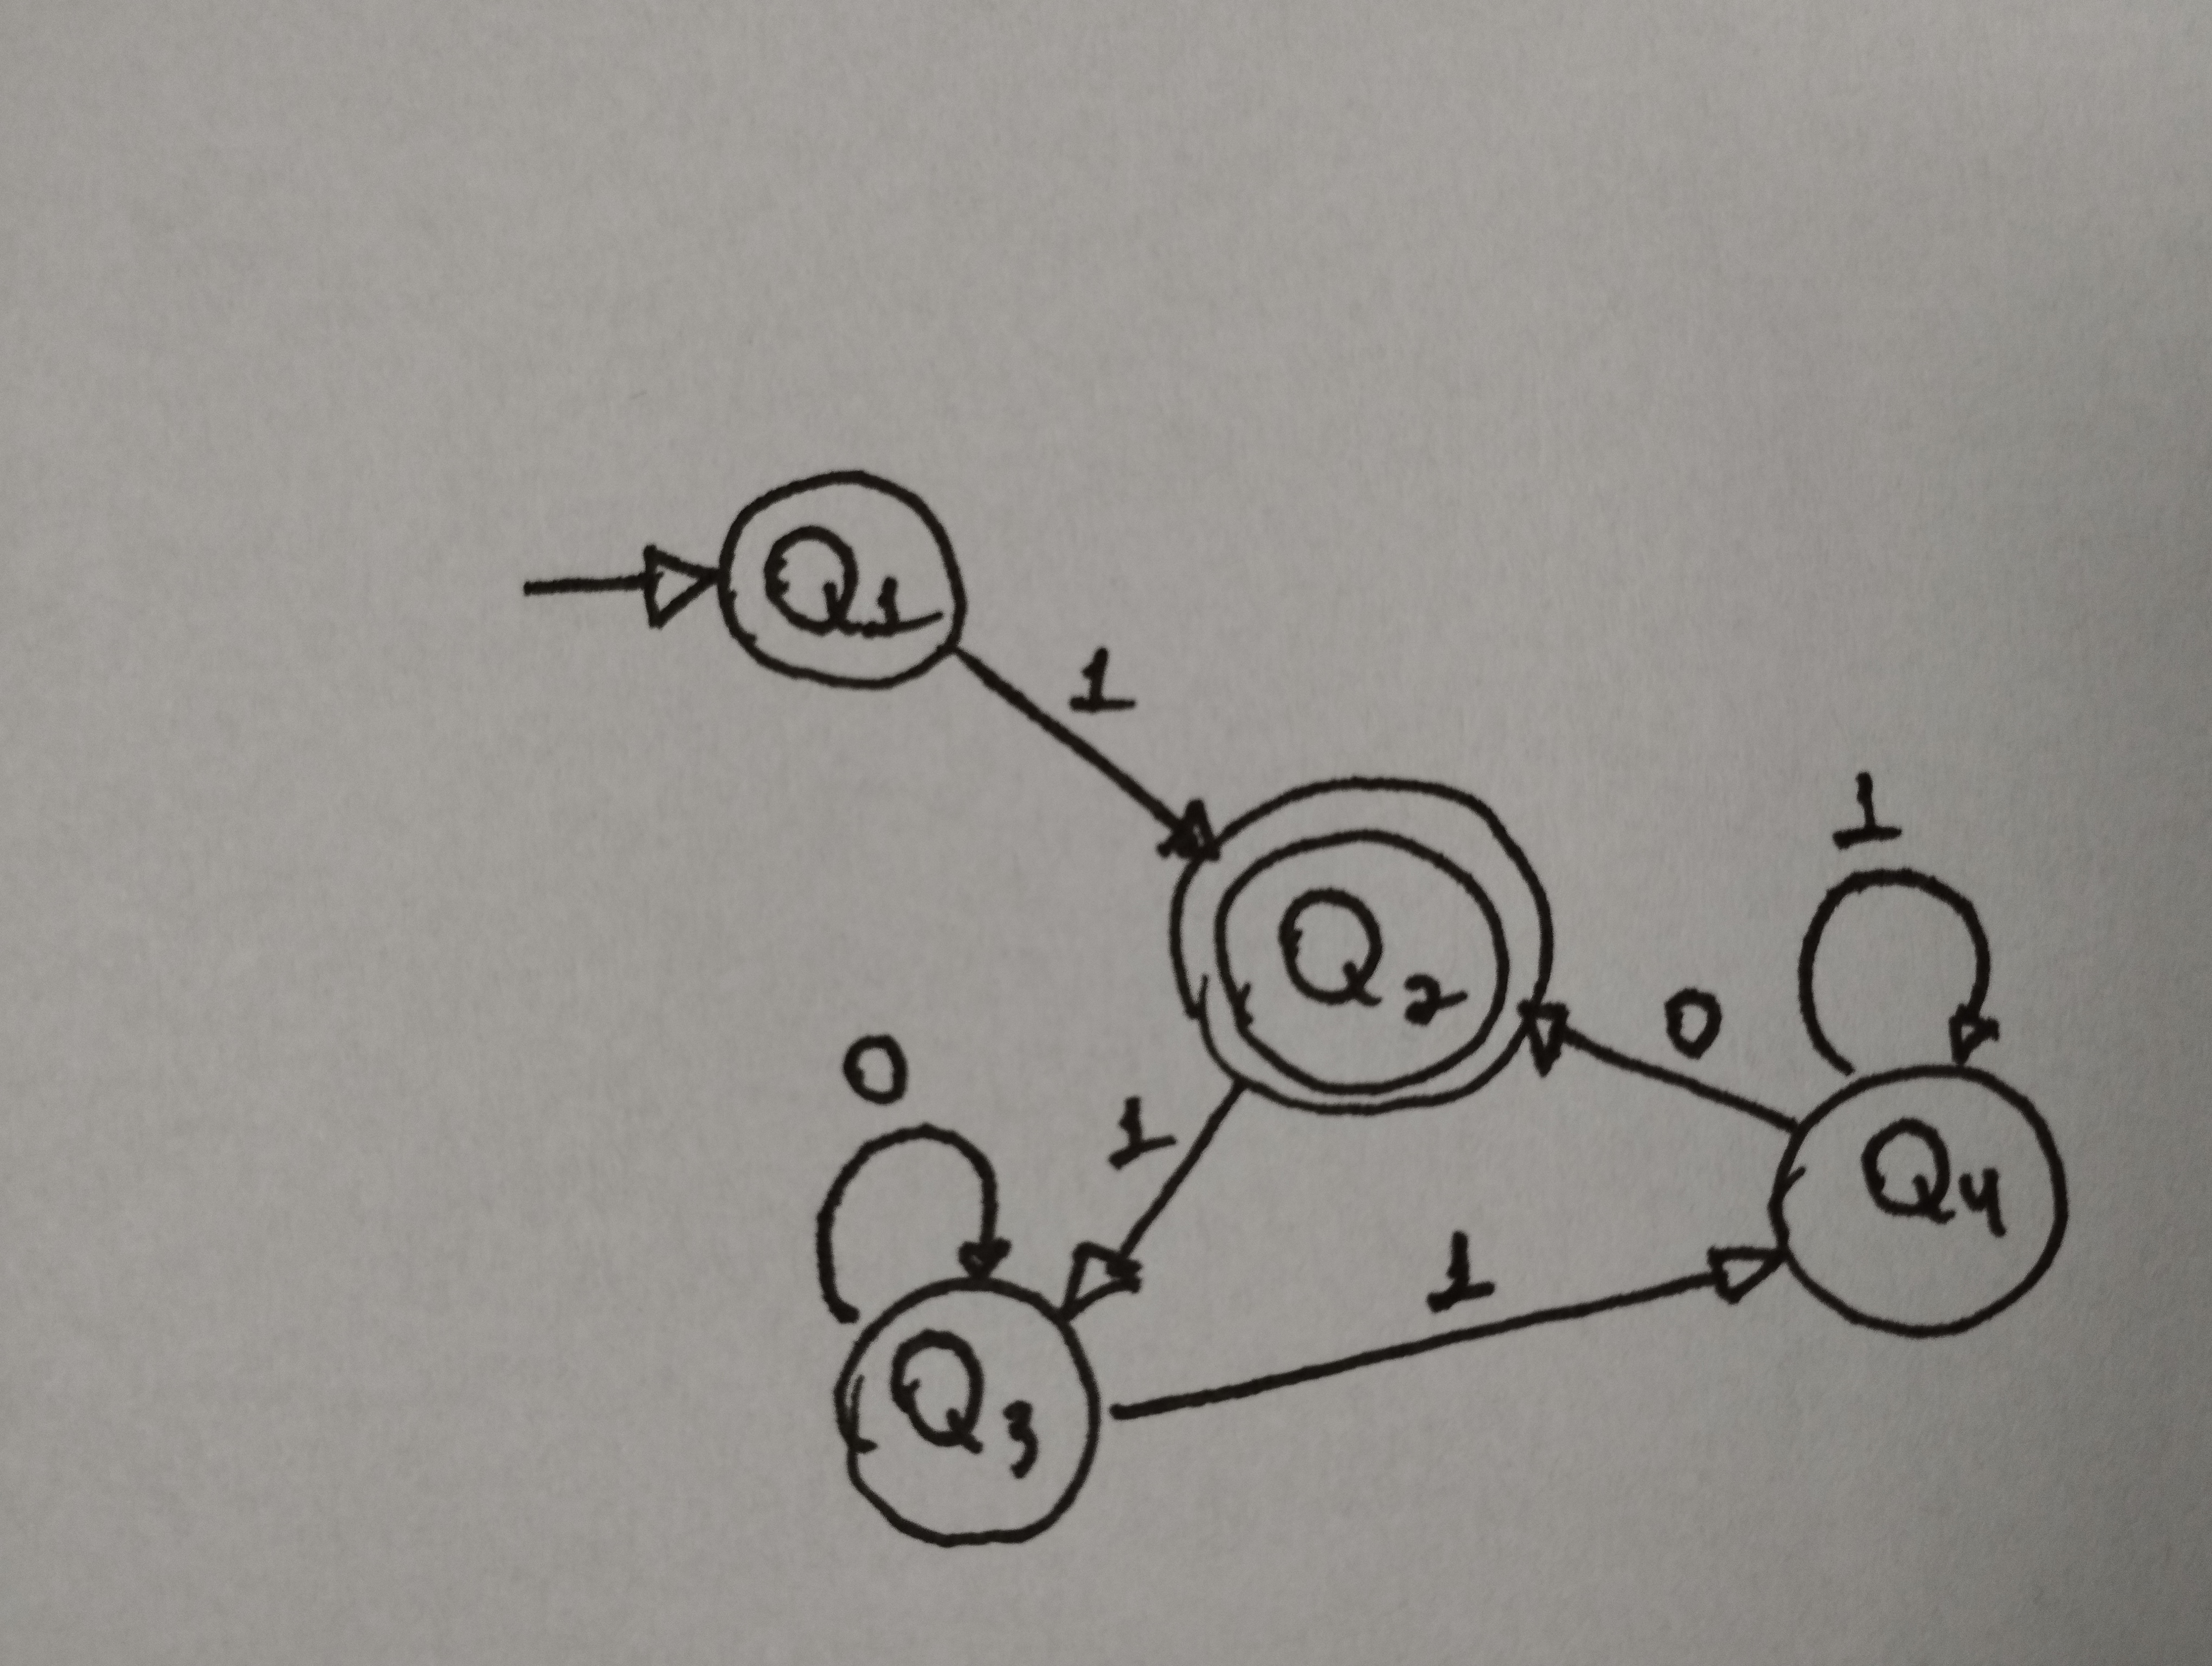 Q1
1
Q2
1
0
0
1
Q4
1
Q3